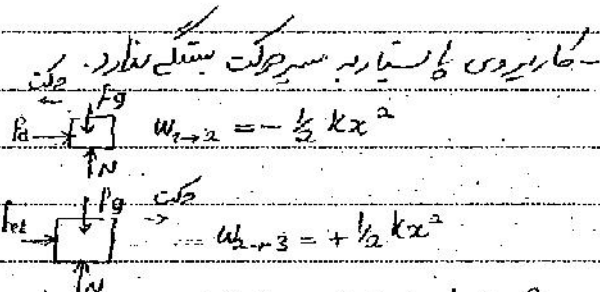 - کار نیروی پایستار به مسیر حرکت بستگی ندارد.
حرکت
←
Fg
W₁→₂ = - ½ kx²
N
Fg
حرکت
→
W₂→₃ = + ½ kx²
N